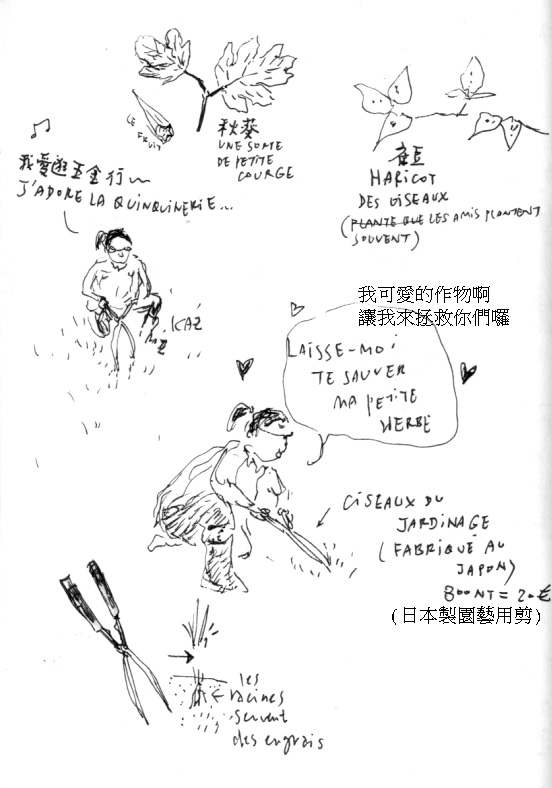 LE
FRUIT
秋葵
UNE SORTE
DE PETITE
COURGE
HARICOT
DES OISEAUX
(PLANTE QUE LES AMIS PLANTENT
SOUVENT)
我愛逛五金行
J'ADORE LA QUINQUINERIE...
KAZ
我可愛的作物啊
讓我來拯救你們囉
LAISSE-MOI
TE SAUVER
MA PETITE
HERBE
CISEAUX DU
JARDINAGE
(FABRIQUÉ AU
JAPON)
800NT = 20€
(日本製園藝用剪)
les
racines
servent
des engrais